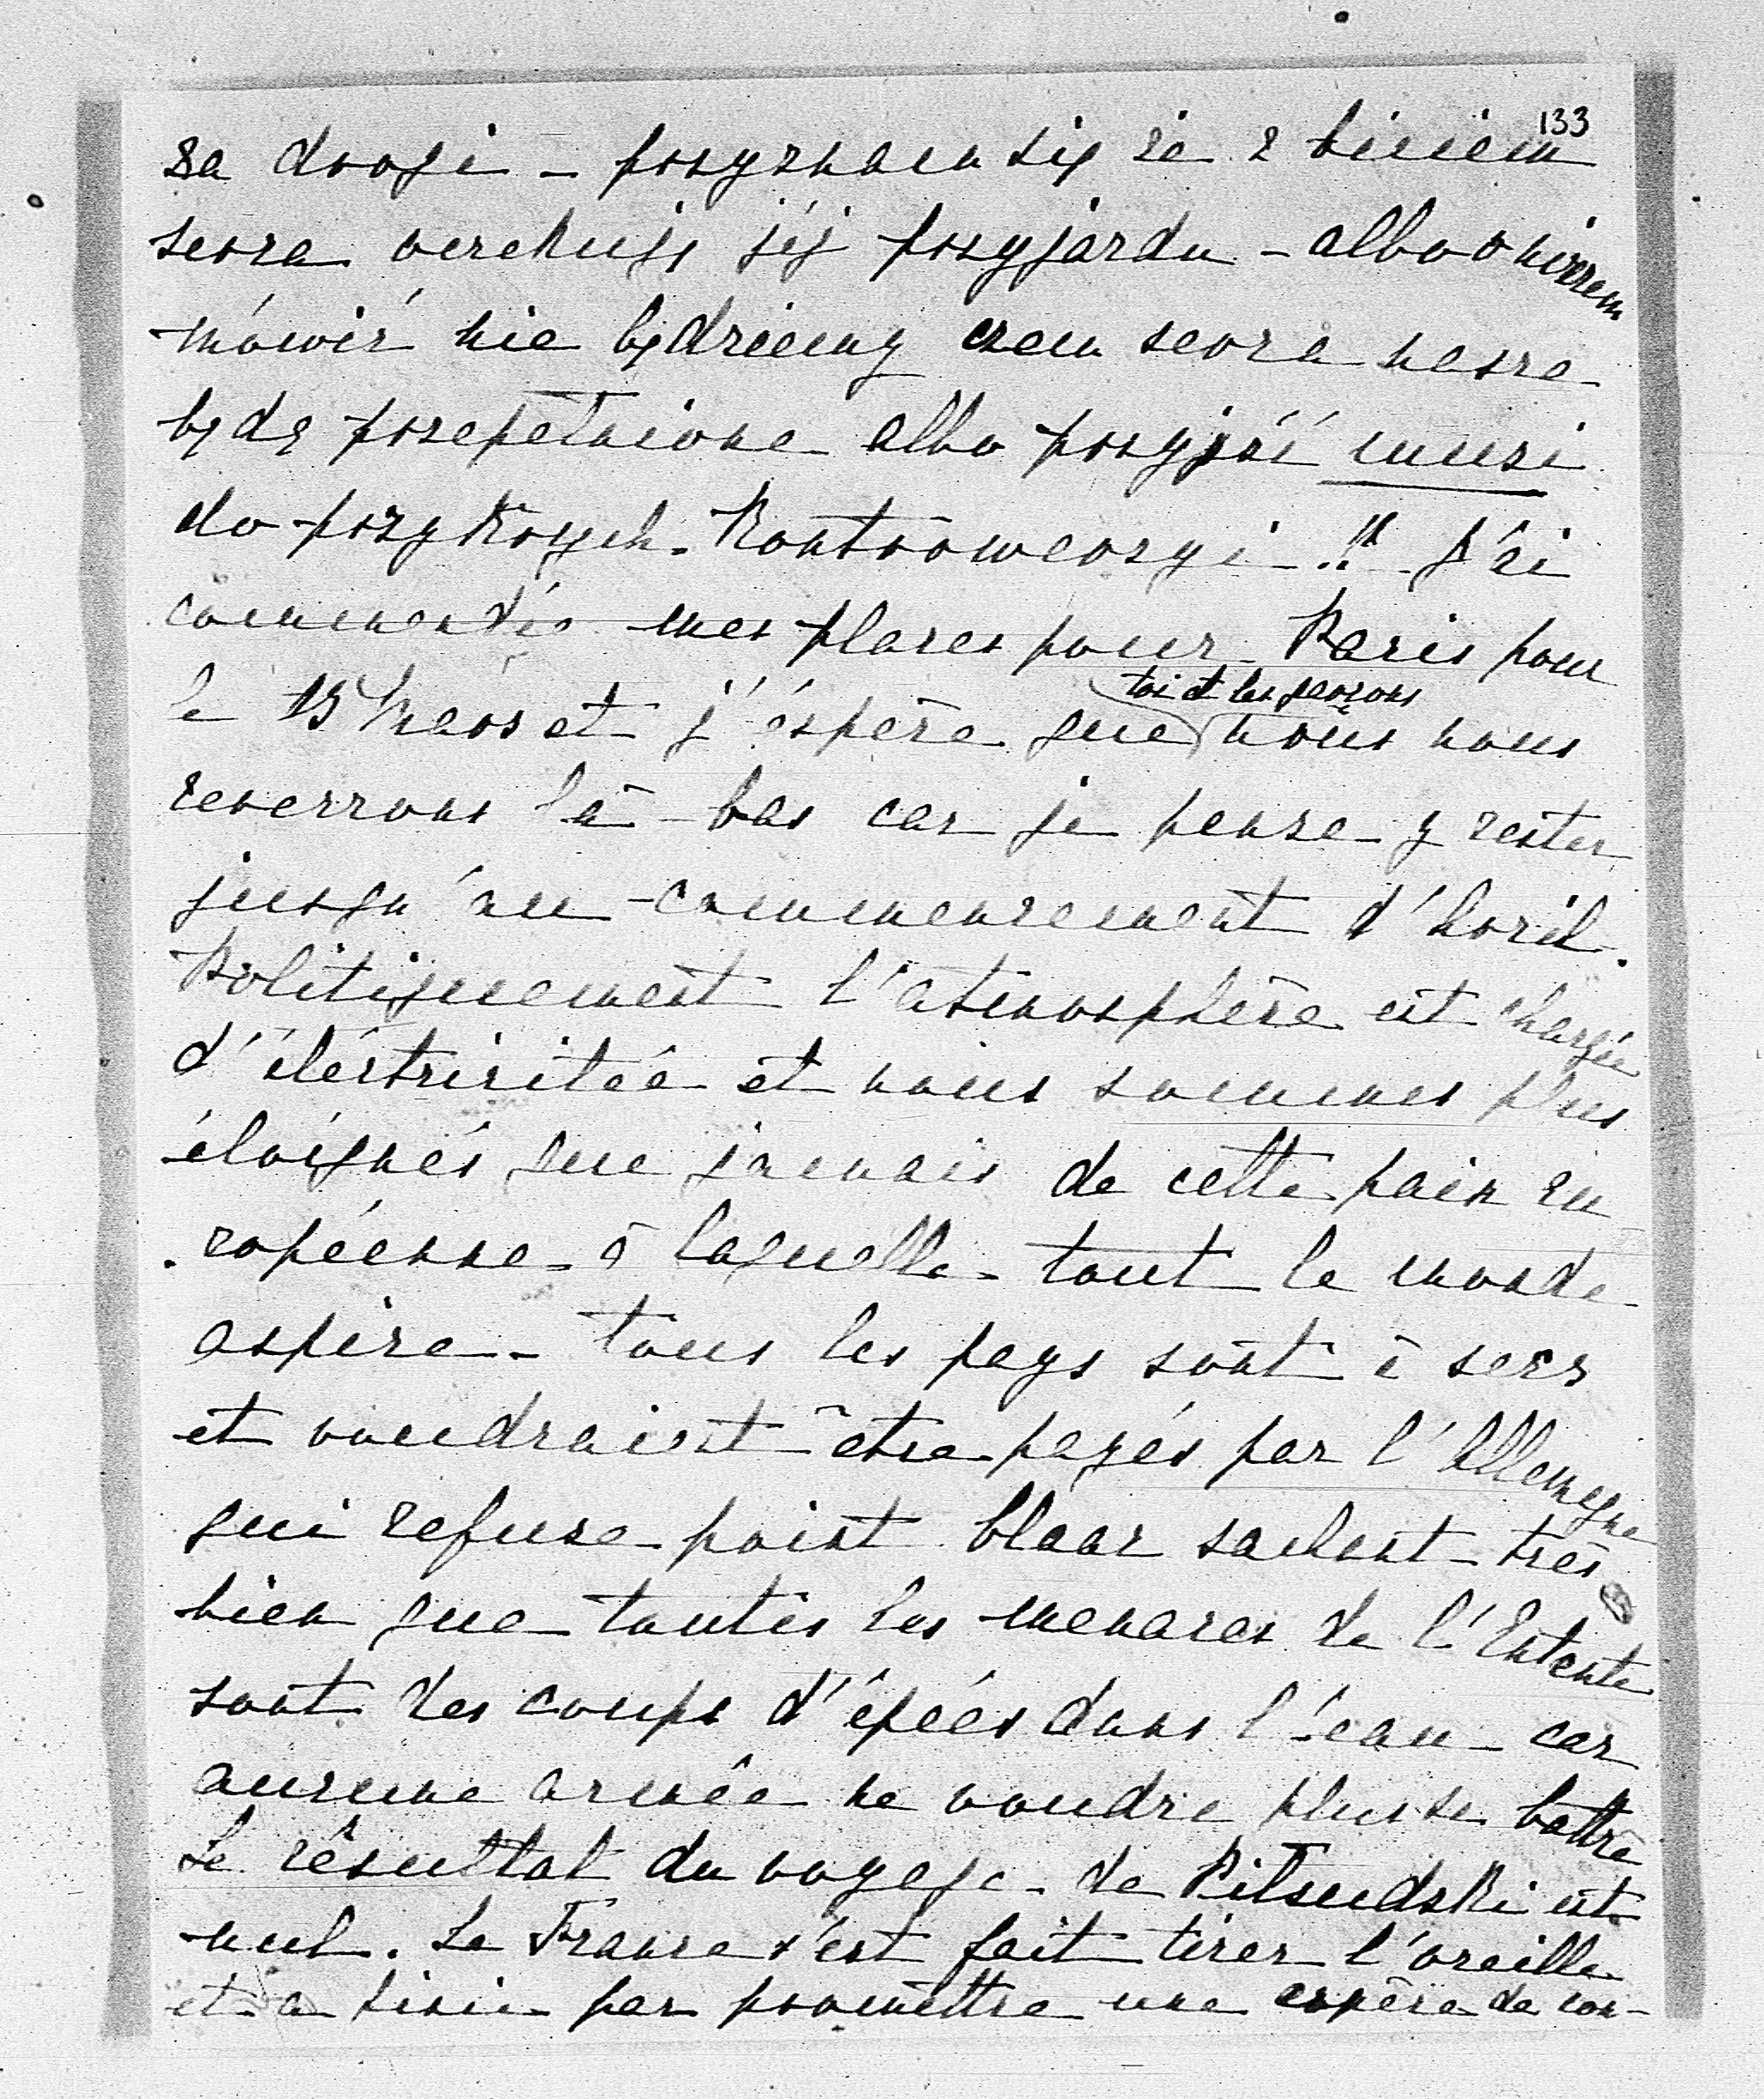 133
za drogi – przyznam się że z biciem
serca oczekuję jéj przyjazdu – albo o niczem
mówić nie będziemy czem serca nasze
będą przepełnione albo przyjść musi
do przykrych kontrowersyi – !! J'ai
commandée mes places pour Paris pour
le 15 Mars et j'éspère que (toi et les garçons) nous nous
reverrons là-bas car je pense y rester
jusqu'au commencement d'Avril.
Politiquement l'atmosphère est chargée
d'éléctricitée et nous sommes plus
éloignés que jamais de cette paix eu-
ropéenne à laquelle tout le monde
aspire – tous les pays sont à sec
et voudraient être payés par l'Allemagne
qui refuse point blanc sachant très
bien que toutes les menaces de l'Entente
sont des coups d'épées dans l'eau – car
aucune armée ne voudra plus se battre
Le résultat du voyage de Piłsudski est
nul. La France s'est fait tirer l'oreille
et a finie par promettre une espèce de con-